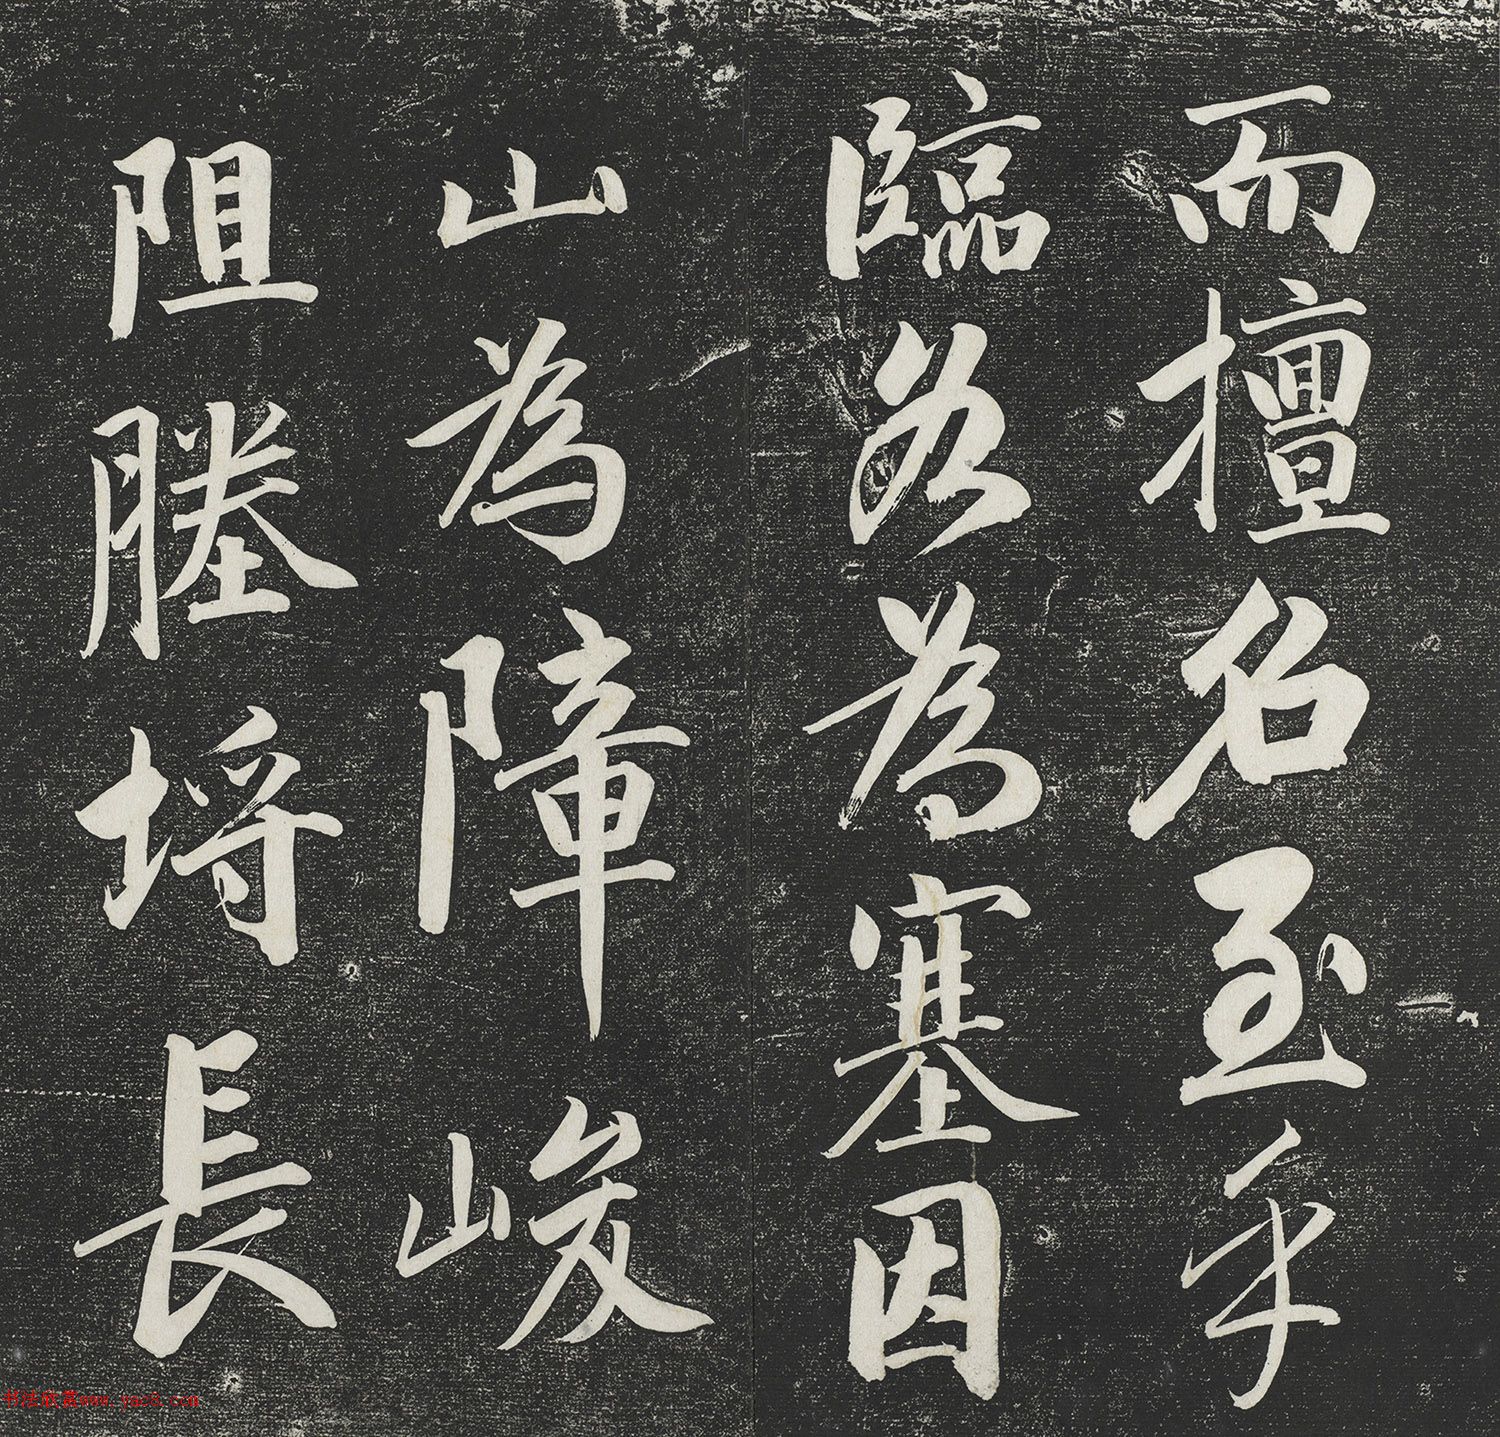 而擅名至乎
臨谷為塞因
山為障峻
阻塍埒長
书法欣赏www.yac8.com